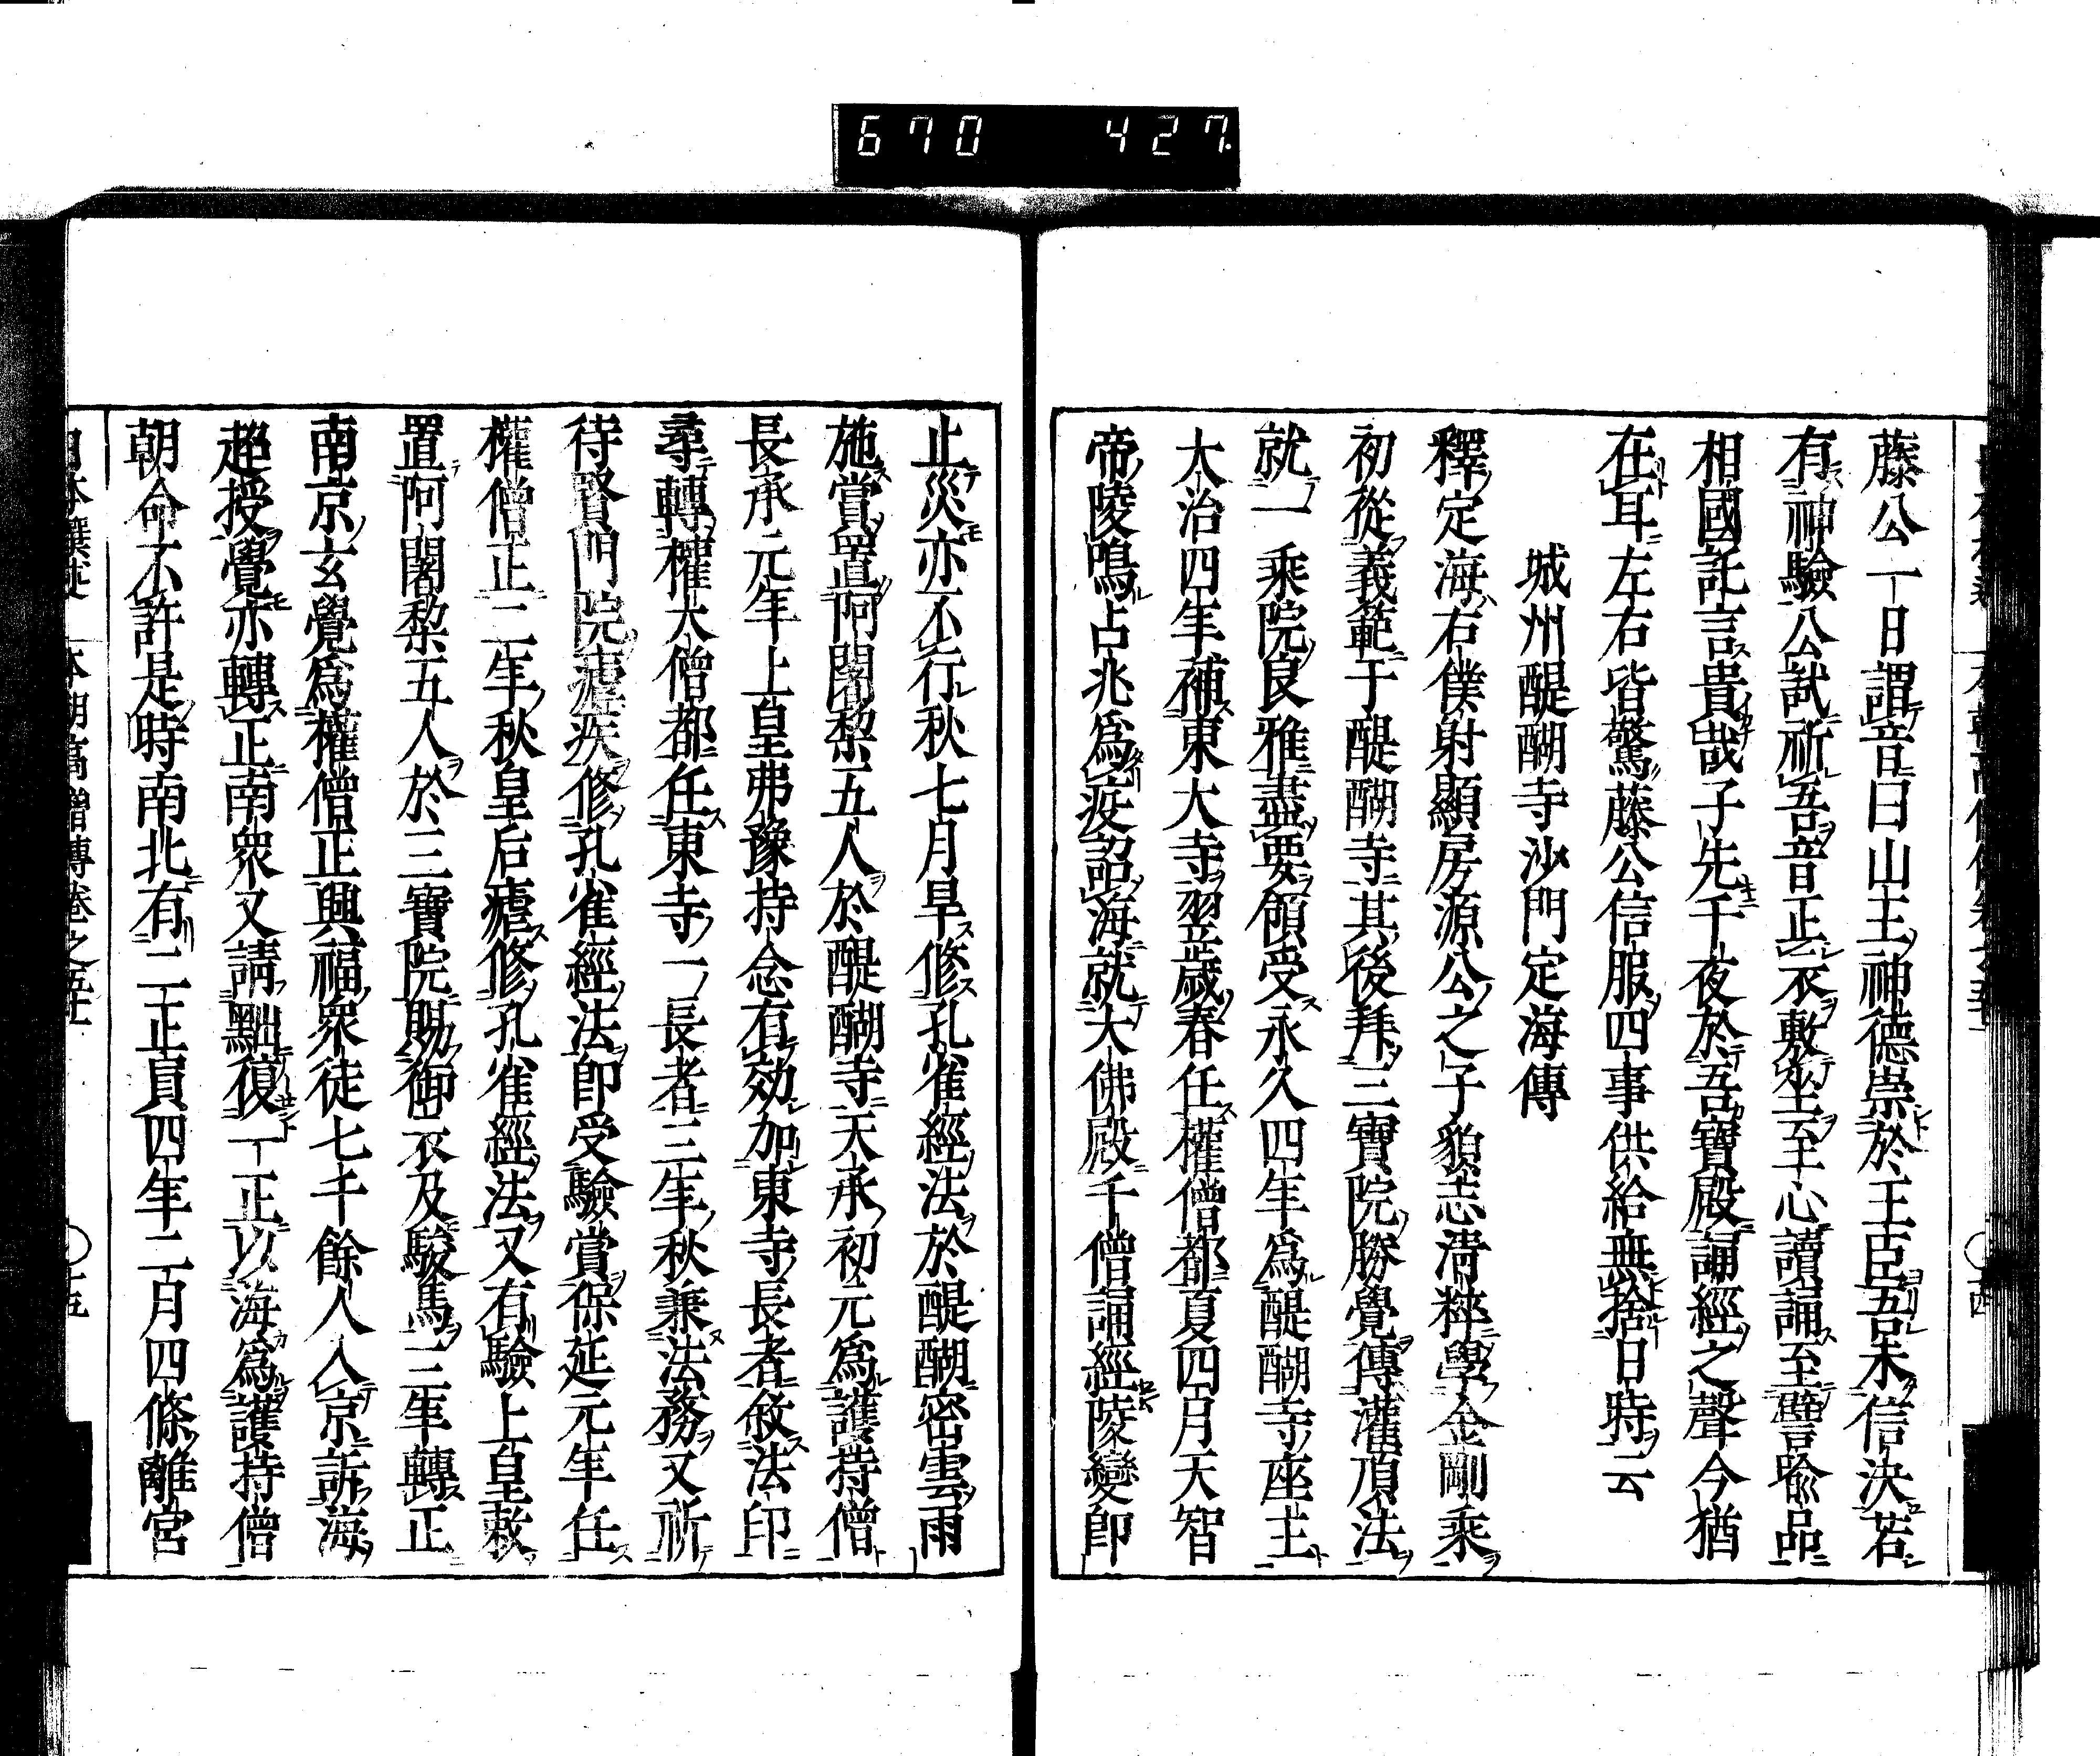 670 427.
藤公一日謂音曰山王神德崇於王臣吾未信決若
有神驗公試祈吾音正衣敷坐至心讀誦至譬喩品
相國託言貴哉子先千夜於吾寶殿誦經之聲今猶
在耳左右皆驚藤公信服四事供給無捨日時云
城州醍醐寺沙門定海傳
釋定海右僕射顯房源公之子貌志淸粹學金剛乘
初從義範于醍醐寺其後拜三寶院勝覺傳灌頂法
就一乘院良雅盡要領受永久四年爲醍醐寺座主
大治四年補東大寺翌歲春任權僧都夏四月天智
帝陵鳴占兆爲疫詔海就大佛殿千僧誦經陵變卽
止災亦不行秋七月旱修孔雀經法於醍醐密雲雨
施賞置阿闍梨五人於醍醐寺天承初元爲護持僧
長承元年上皇弗豫持念有効加東寺長者敘法印
尋轉權大僧都任東寺一長者三年秋兼法務又祈
待賢門院瘧疾修孔雀經法卽受驗賞保延元年任
權僧正二年秋皇后瘧修孔雀經法又有驗上皇敕
置阿闍梨五人於三寶院賜御衣及駿馬三年轉正
南京玄覺爲權僧正興福衆徒七千餘人入京訴海
超授覺亦轉正南衆又請黜復一正以海爲護持僧
朝命不許是時南北有二正員四年二月四條離宮
日本撰述 本朝高僧傳卷之五十 〇 十五